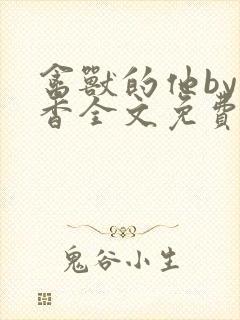 禽獸的他by
香全文免費
鬼谷小生